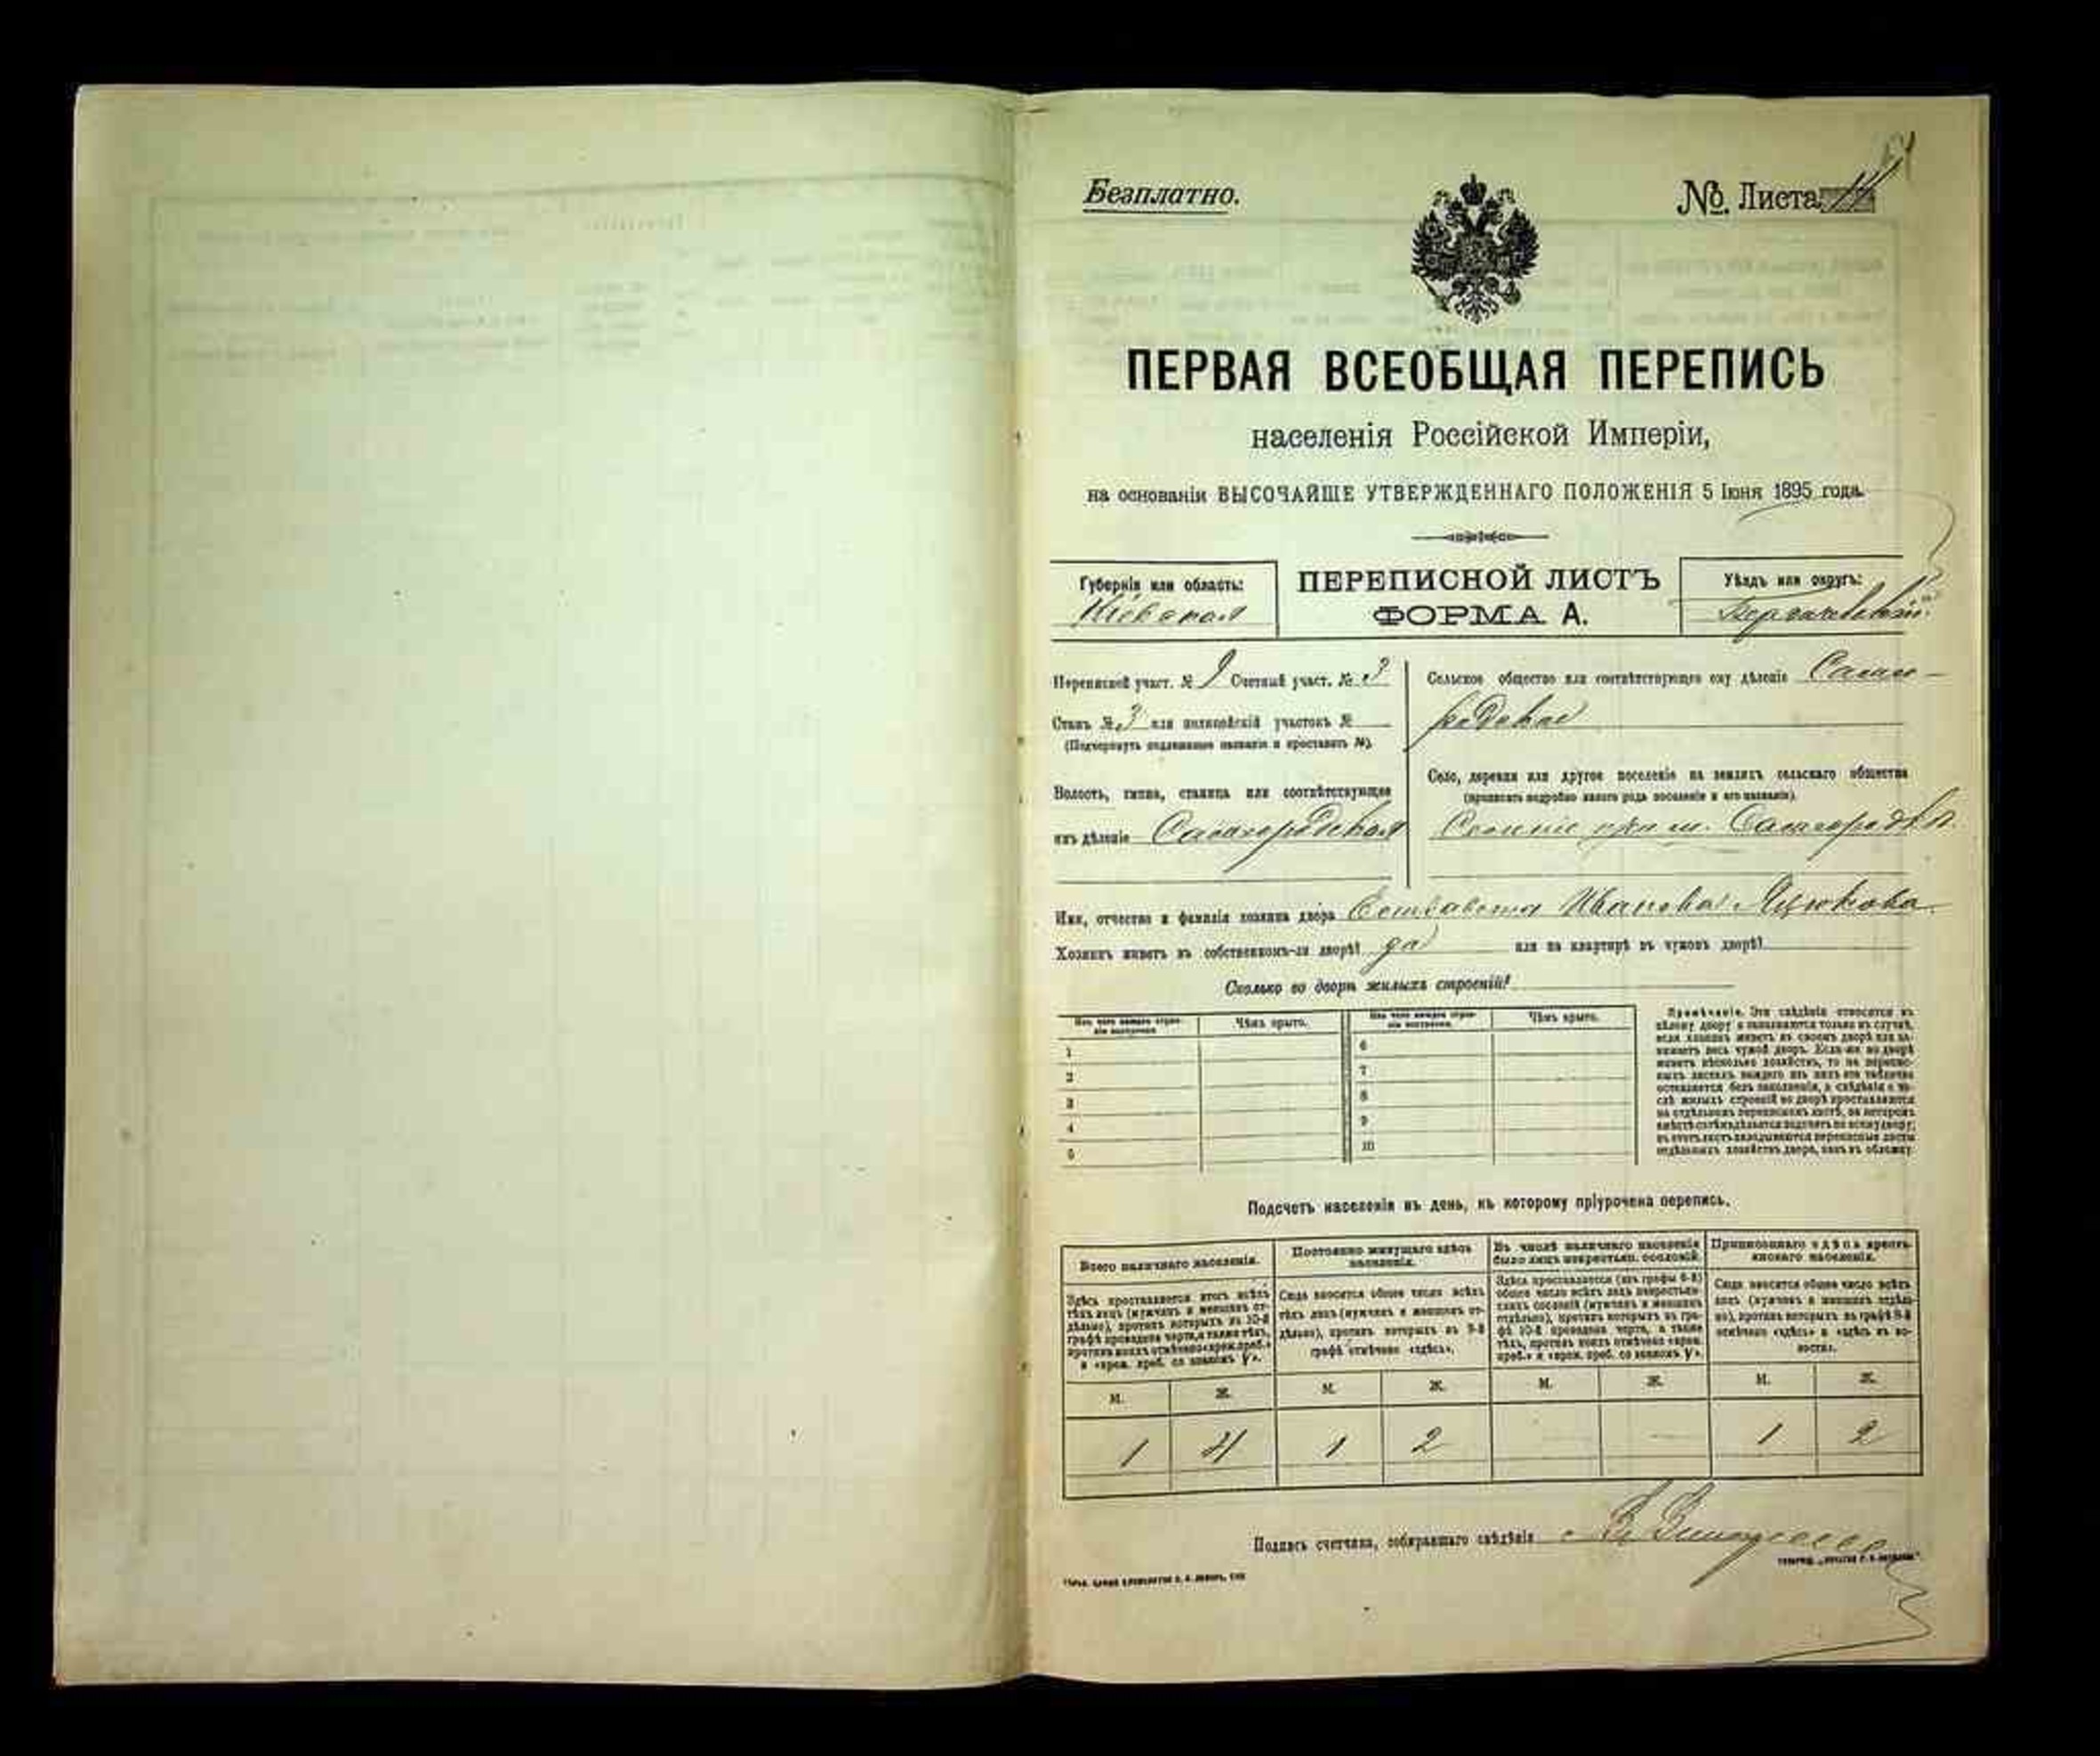 Безплатно.
№. Листа
ПЕРВАЯ ВСЕОБЩАЯ ПЕРЕПИСЬ
населенія Россійской Имперіи,
на основаніи ВЫСОЧАЙШЕ УТВЕРЖДЕННАГО ПОЛОЖЕНІЯ 5 Іюня 1895 года.
Губернія или область:
Кіевская
ПЕРЕПИСНОЙ ЛИСТЪ
ФОРМА А.
Уѣздъ или округъ:
Бердичевскій
Переписной участ. № 9 Счетный участ. № 3
Станъ № 3 или полицейскій участокъ №
(Подчеркнуть подлежащее названіе и проставить №).
Волость, гмина, станица или соотвѣтствующее
имъ дѣленіе Самгородская
Сельское общество или соотвѣтствующее ему дѣленіе Самго-
родское
Село, деревня или другое поселеніе на земляхъ сельскаго общества
(прописать подробно какого рода поселеніе и его названіе).
Селеніе при м. Самгородкѣ
Имя, отчество и фамилія хозяина двора Ивановна
Хозяинъ живетъ въ собственномъ-ли дворѣ? да или на квартирѣ въ чужомъ дворѣ?
Сколько во дворѣ жилыхъ строеній?
Изъ чего каждое строеніе построено. Чѣмъ крыто. Изъ чего каждое строеніе построено. Чѣмъ крыто.
1 6
2 7
3 8
4 9
5 10
Примѣчаніе. Эти свѣдѣнія относятся къ
цѣлому двору и заполняются только въ случаѣ,
если хозяинъ живетъ въ своемъ дворѣ или за-
нимаетъ весь чужой дворъ. Если-же во дворѣ
живетъ нѣсколько хозяйствъ, то на перепис-
ныхъ листахъ каждаго изъ нихъ эта табличка
оставляется безъ заполненія, а свѣдѣнія о чи-
слѣ жилыхъ строеній во дворѣ проставляются
на отдѣльномъ переписномъ листѣ, на которомъ
вмѣстѣ съ тѣмъ дѣлается подсчетъ по всему двору;
въ этотъ листъ вкладываются переписные листы
отдѣльныхъ хозяйствъ двора, какъ въ обложку.
Подсчетъ населенія въ день, къ которому пріурочена перепись.
Всего наличнаго населенія.
Здѣсь проставляется итогъ всѣхъ
тѣхъ лицъ (мужчинъ и женщинъ от-
дѣльно), противъ которыхъ въ 10-й
графѣ проведена черта, а также тѣхъ,
противъ коихъ отмѣчено «врем. преб.»
и «врем. преб. со знакомъ V».
Постоянно живущаго здѣсь
населенія.
Сюда вносится общее число всѣхъ
тѣхъ лицъ (мужчинъ и женщинъ от-
дѣльно), противъ которыхъ въ 9-й
графѣ отмѣчено «здѣсь».
Въ числѣ наличнаго населенія
было лицъ некрестьян. сословій.
Здѣсь проставляется (изъ графы 6-й)
общее число всѣхъ лицъ некрестьян-
скихъ сословій (мужчинъ и женщинъ
отдѣльно), противъ которыхъ въ гра-
фѣ 10-й проведена черта, а также
тѣхъ, противъ коихъ отмѣчено «врем.
преб.» и «врем. преб. со знакомъ V».
Приписаннаго здѣсь кресть-
янскаго населенія.
Сюда вносится общее число всѣхъ
лицъ (мужчинъ и женщинъ отдѣль-
но), противъ которыхъ въ графѣ 8-й
отмѣчено «здѣсь» и «здѣсь въ во-
лости».
М. Ж. М. Ж. М. Ж. М. Ж.
1 4 1 2 1 2
Подпись счетчика, собиравшаго свѣдѣнія